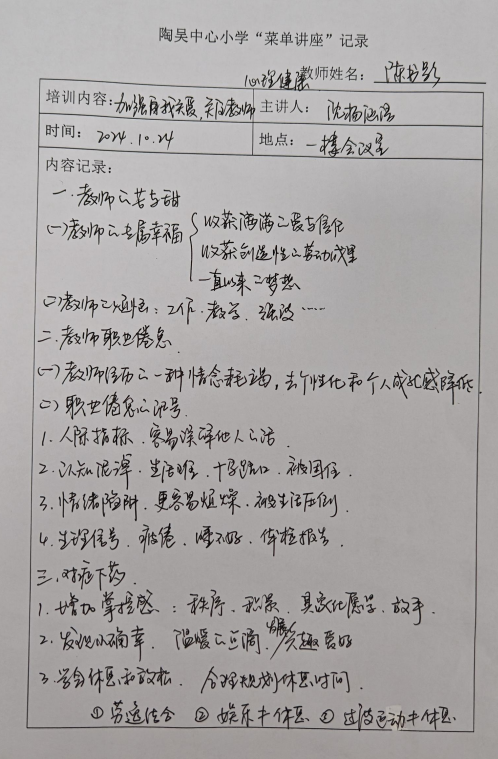 陶吴中心小学“菜单讲座”记录
教师姓名：陈
培训内容：加强自我关爱，关注教师心理健康 主讲人：沈杨
时间：2024.10.24 地点：一楼会议室
内容记录：
一.教师の苦与甜
(一)教师の专属幸福 { 收获满满の爱与信任
收获创造性の劳动成果
一直以来の梦想
(二)教师の烦恼：工作.教学.
二.教师职业倦怠
(一)教师经历の一种情感耗竭，去个性化和个人成就感降低.
(二)职业倦怠の信号.
1.人际指标.容易误解他人の话.
2.认知泥潭.生活难.十字路口.被困住.
3.情绪陷阱.更容易烦躁.被生活压倒.
4.生理信号.疲倦.睡不好.体检报告.
三.对症下药.
1.增加掌控感：秩序.积累.具象化愿望.放手.
2.发现小确幸.温暖の 发展兴趣爱好
3.学会休息和放松.合理规划休息时间.
①劳逸结合 ②娱乐≠休息 ③过度运动≠休息